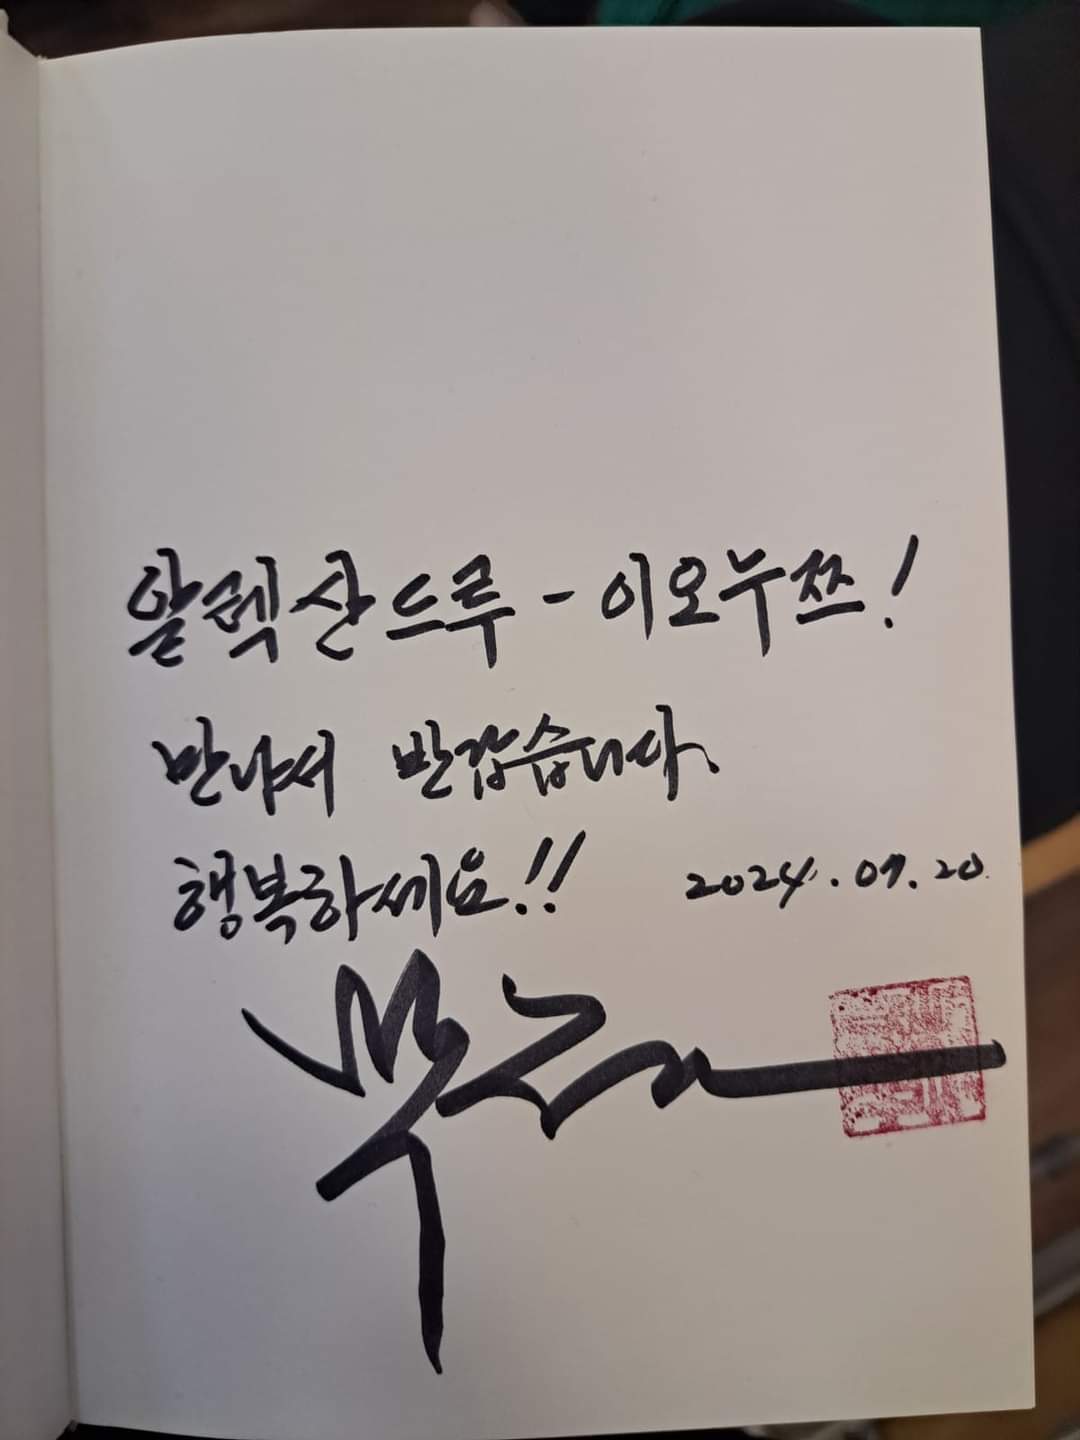 알렉산드루-이오누쯔!
만나서 반갑습니다.
행복하세요!! 2024.07.20.